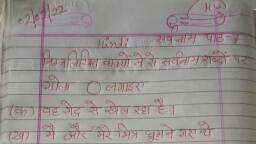 H.W
Hindi
सर्वनाम पाठ-7
निम्नलिखित वाक्यों में से सर्वनाम शब्दों पर
गोला ○ लगाइए
(क) वह गेंद से खेल रहा है।
(ख) मैं और मेरे मित्र घूमने गए थे